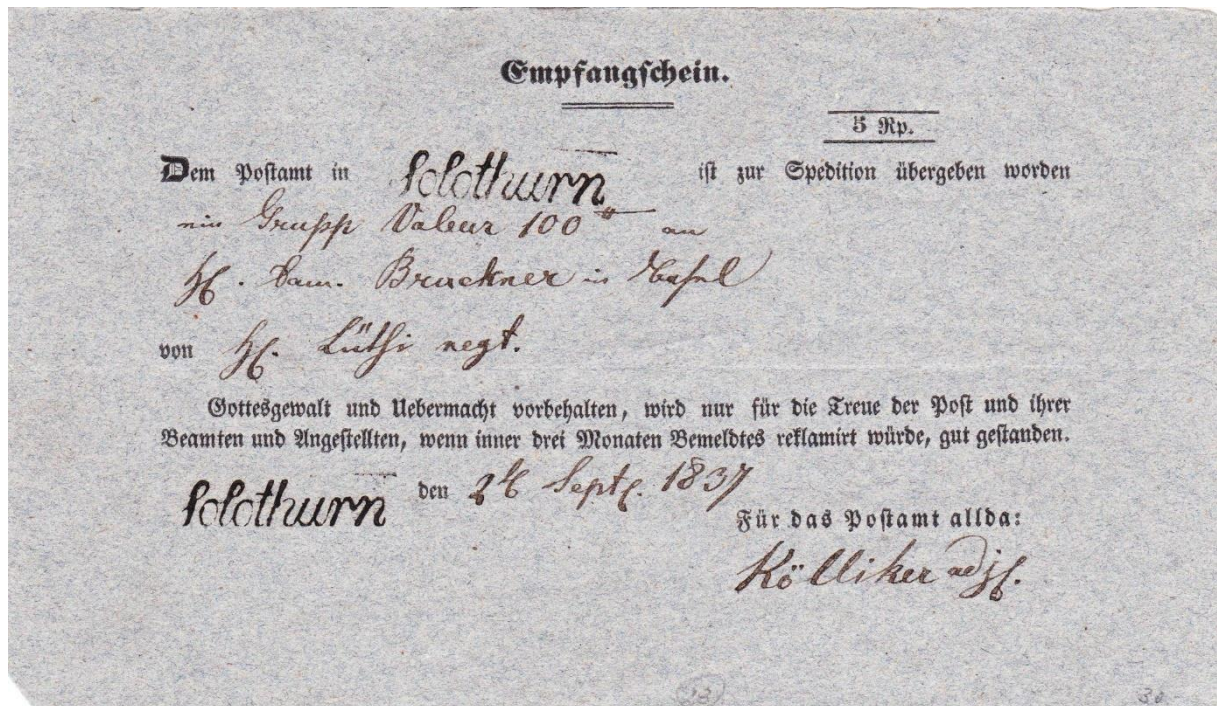 Empfangschein.
5 Rp.
Dem Postamt in Solothurn ist zur Spedition übergeben worden
ein Grupp Valeur 100 an
H. Bruckner in Basel
von H. Lüthi negt.
Gottesgewalt und Uebermacht vorbehalten, wird nur für die Treue der Post und ihrer
Beamten und Angestellten, wenn inner drei Monaten Bemeldtes reklamirt würde, gut gestanden.
Solothurn den Sept. 1837
Für das Postamt allda:
Kölliker adj.